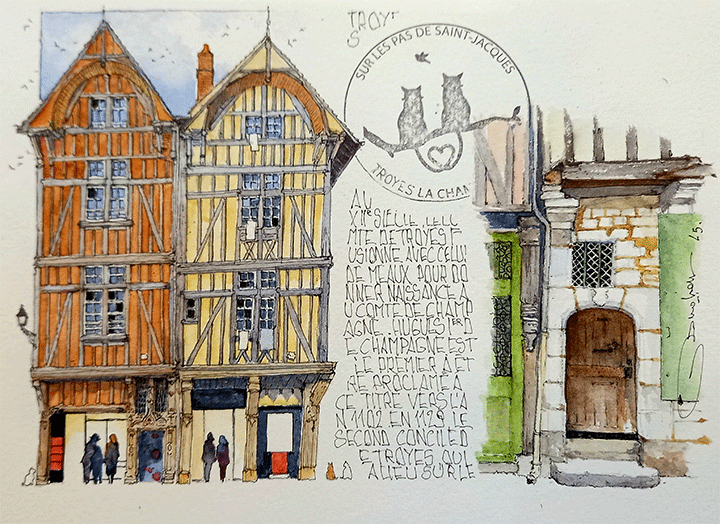 TROYE
S
SUR LES PAS DE SAINT-JACQUES
TROYES LA CHAM
AU
XIIe SIECLE, LE CO
MTE DE TROYES F
USIONNE AVEC CELUI
DE MEAUX POUR DO
NNER NAISSANCE A
U COMTE DE CHAMP
AGNE. HUGUES 1ER D
E CHAMPAGNE EST
LE PREMIER A ET
RE PROCLAME A
CE TITRE VERS L'A
N 1102 EN 1129 LE
SECOND CONCILE D
E TROYES QUI
A LIEU SUR LE